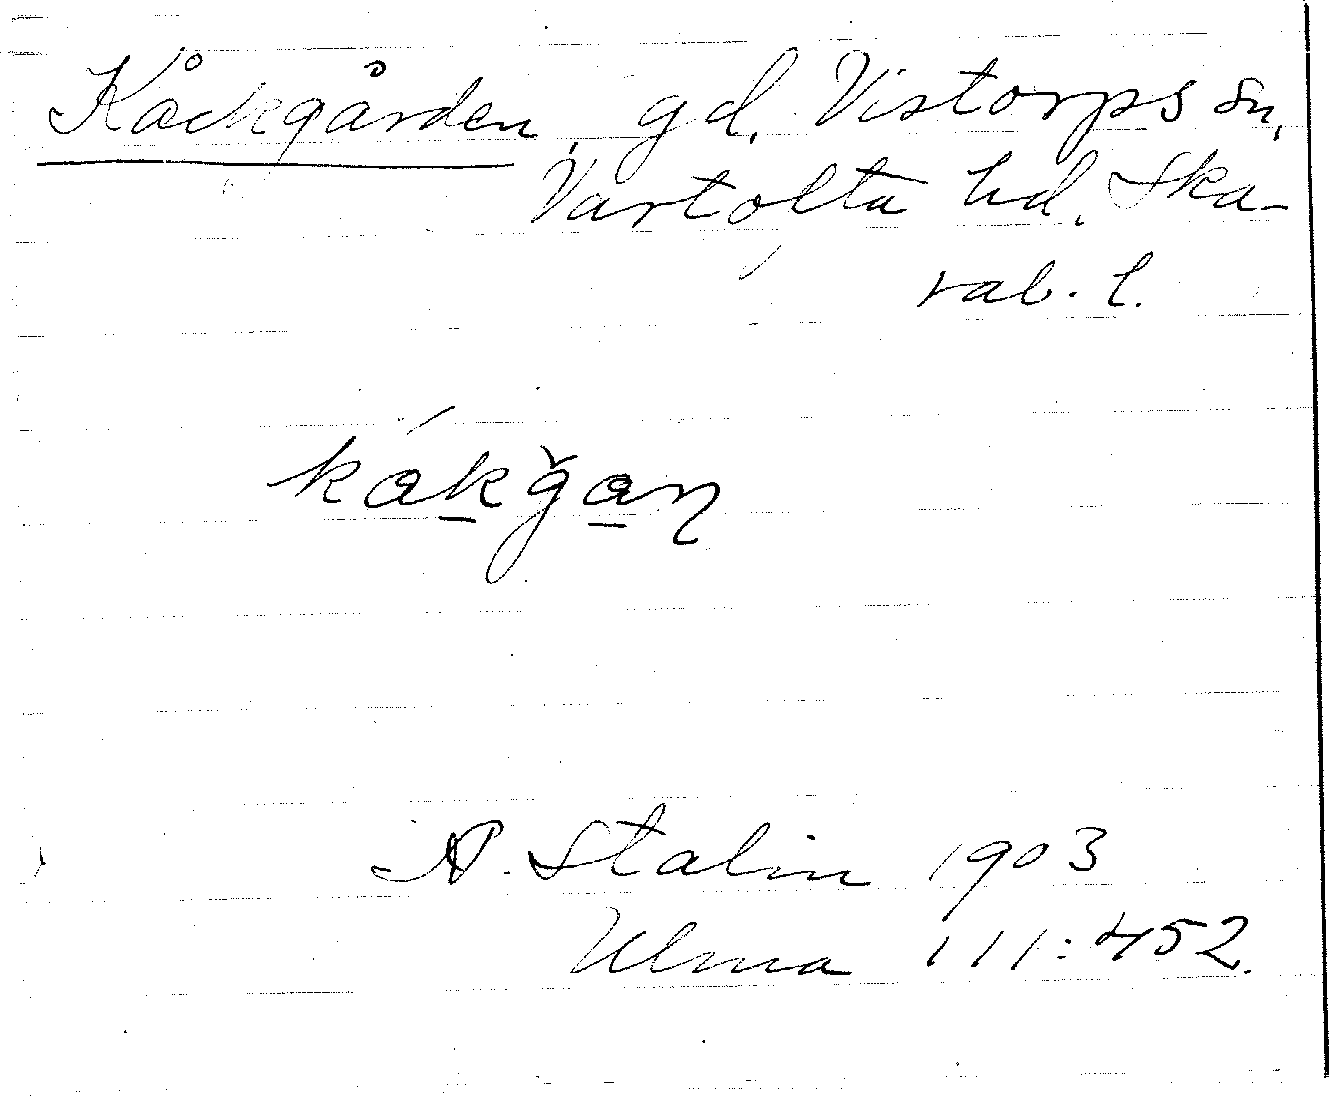 Kåckgården, gd, Vistorps sn,
Vartofta hd. Ska-
rab. l.
kákğan
A. Stalin 1903
Ulma 111:452.